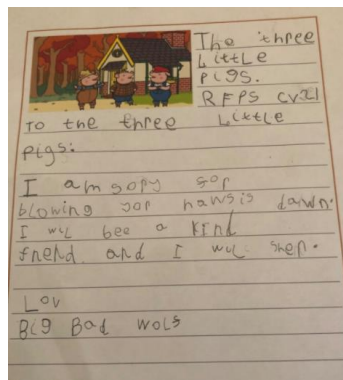 The three
Little
pigs.
RFPS CV21
To the three Little
pigs:
I am sopy sop
blowing yop hawsis dawn.
I wil bee a kind
frend and I wil shep.
Lov
Big Bad wols